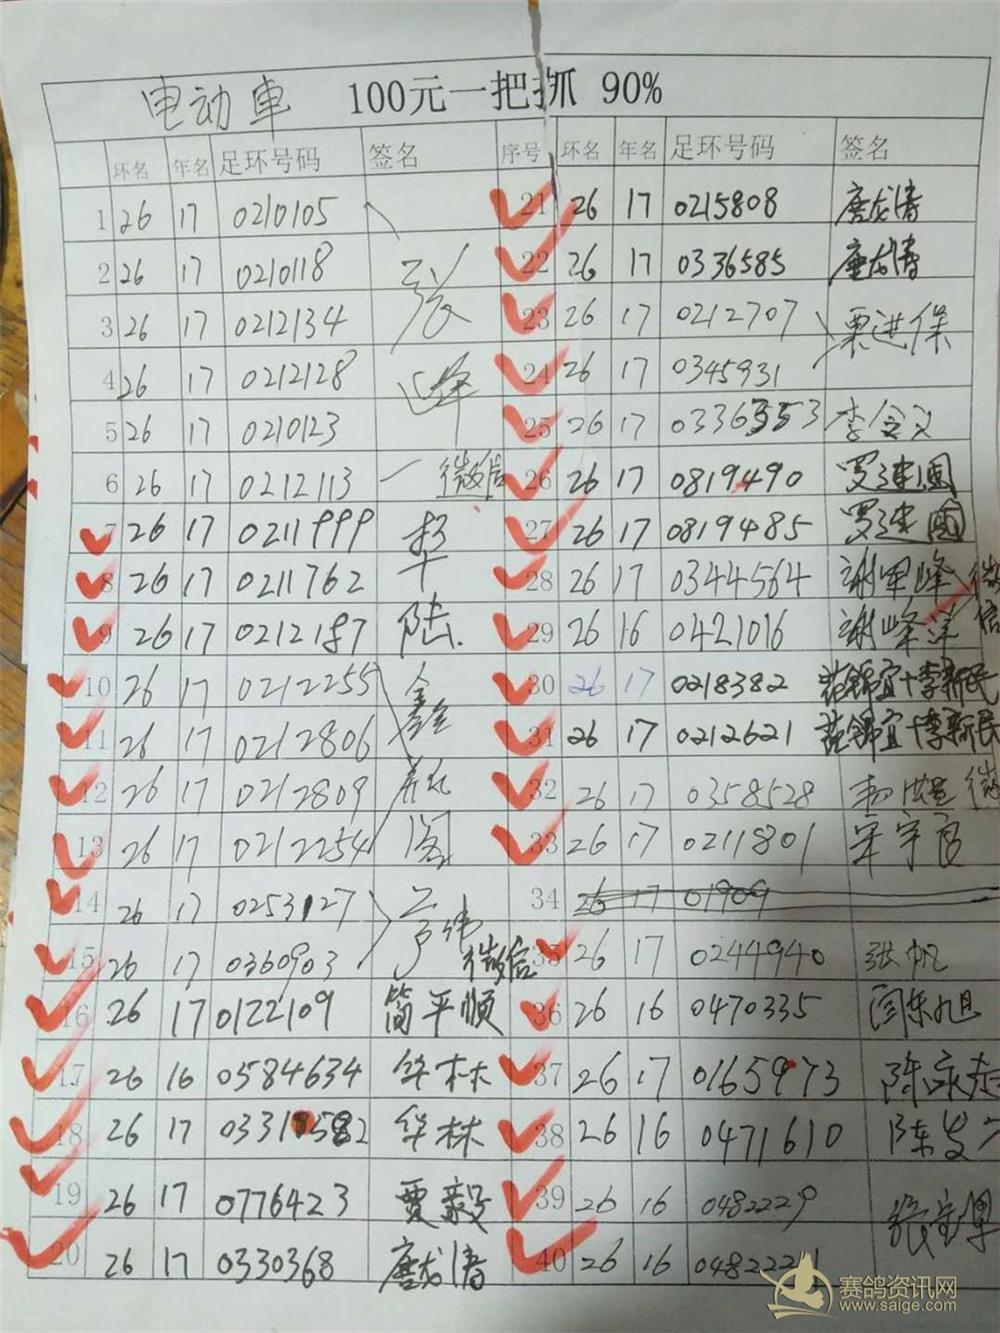 电动车 100元一把抓 90%
环名 年名 足环号码 签名 序号 环名 年名 足环号码 签名
1 26 17 0210105 21 26 17 0215808 唐龙清
2 26 17 0210118 张 22 26 17 0336585 唐龙清
3 26 17 0212134 23 26 17 0212707 栗进保
4 26 17 0212128 峰 24 26 17 0345931
5 26 17 0210123 25 26 17 0336353 李
6 26 17 0212113 微信 26 26 17 0819490 罗建国
7 26 17 0211999 27 26 17 0819485 罗建国
8 26 17 0211762 28 26 17 0344564 谢军峰 微信
9 26 17 0212187 陆 29 26 16 0421016 谢峰
10 26 17 0212255 鑫 30 26 17 0218382 范锦宜+李新民
11 26 17 0212806 31 26 17 0212621 范锦宜+李新民
12 26 17 0212809 32 26 17 0358528 微
13 26 17 0212254 阁 33 26 17 0211801 宋宇
14 26 17 0253127 34 26 17 01909
15 26 17 0360903 微信 35 26 17 0244940 张帆
16 26 17 0122109 简平顺 36 26 16 0470335 闫东旭
17 26 16 0584634 华林 37 26 17 0165973 陈永
18 26 17 0331582 华林 38 26 16 0471610 陈发
19 26 17 0776423 贾毅 39 26 16 0482229 张宝
20 26 17 0330368 唐龙清 40 26 16 0482221
赛鸽资讯网
www.saige.com